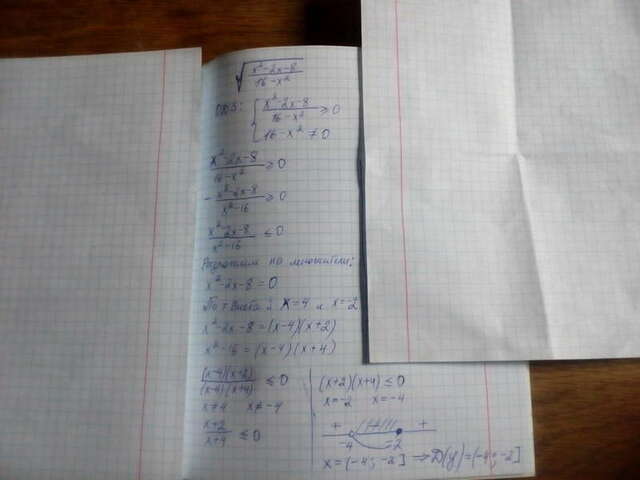 √((x²-2x-8)/(16-x²))
ОДЗ: { (x²-2x-8)/(16-x²) ≥ 0
16-x² ≠ 0
(x²-2x-8)/(16-x²) ≥ 0
-(x²-2x-8)/(x²-16) ≥ 0
(x²-2x-8)/(x²-16) ≤ 0
Разложим на множители:
x²-2x-8=0
По т Виета x=4 и x=-2
x²-2x-8=(x-4)(x+2)
x²-16=(x-4)(x+4)
((x-4)(x+2))/((x-4)(x+4)) ≤ 0
x≠4 x≠-4
(x+2)/(x+4) ≤ 0
(x+2)(x+4) ≤ 0
x=-2 x=-4
+ +
-4 -2
x=(-4;-2] ⇒ D(y)=(-4;-2]